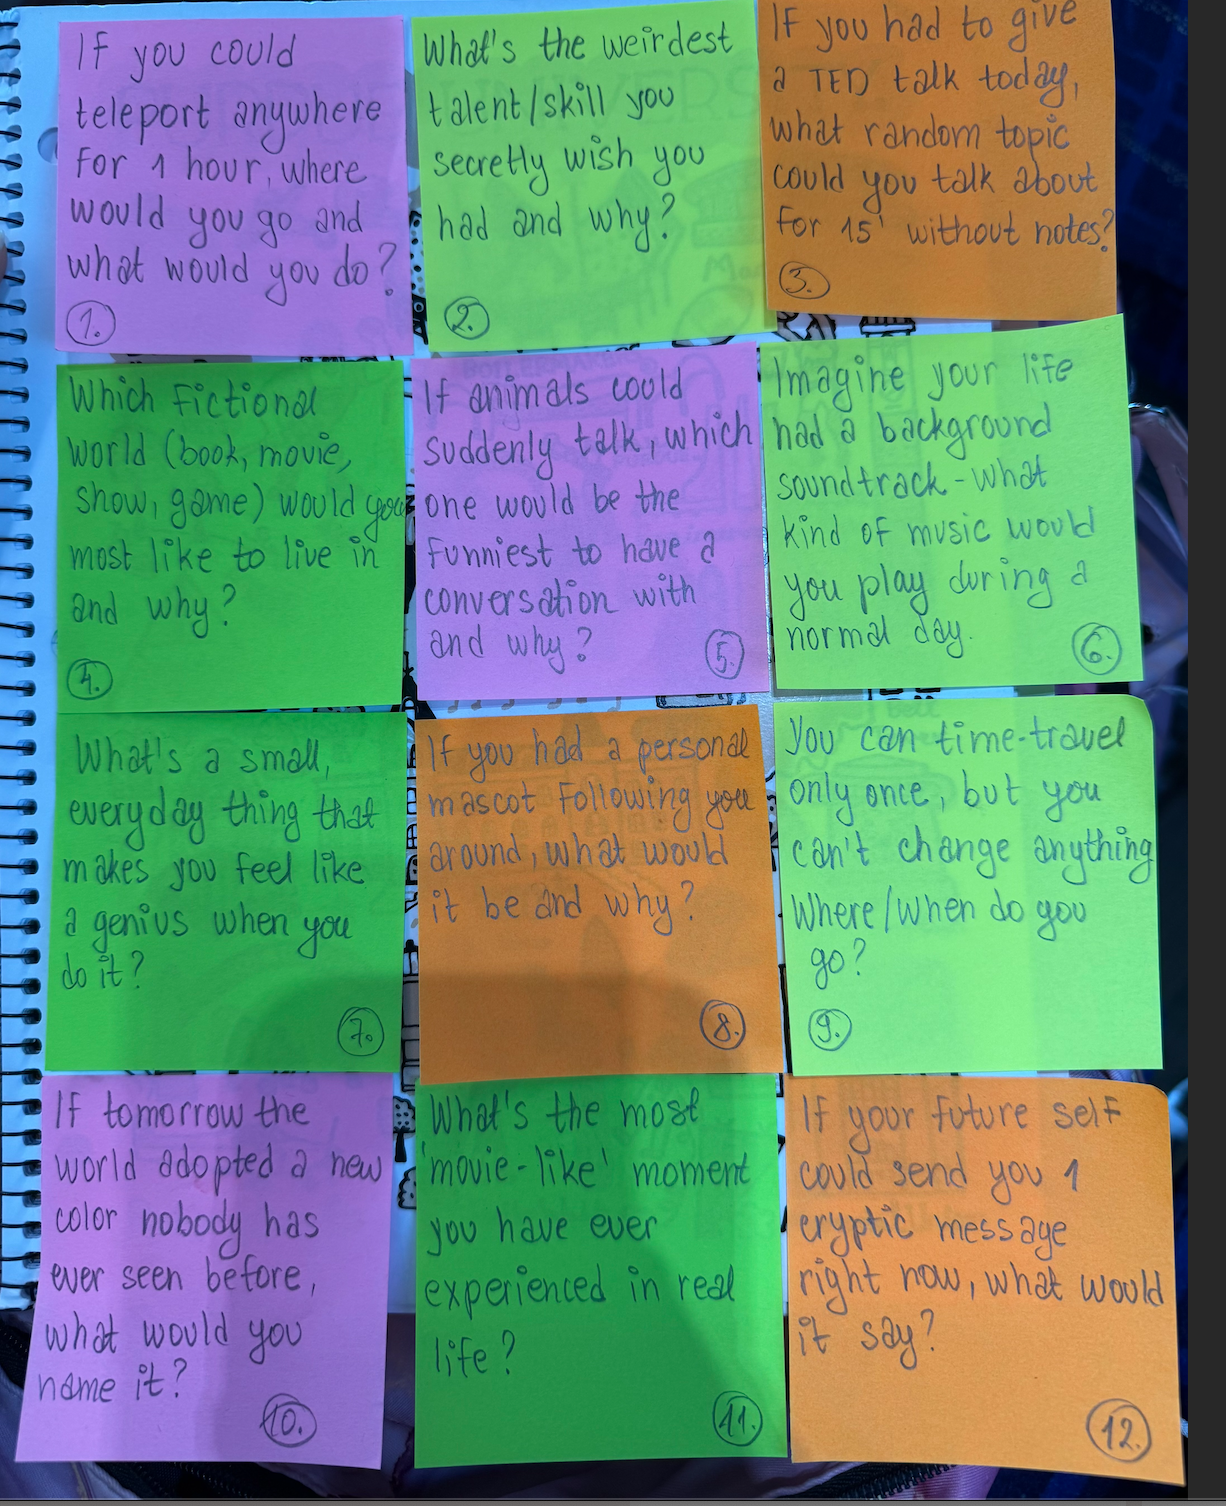 If you could
teleport anywhere
for 1 hour, where
would you go and
what would you do?
1.
What's the weirdest
talent/skill you
secretly wish you
had and why?
2.
If you had to give
a TED talk today,
what random topic
could you talk about
for 15' without notes?
3.
Which fictional
world (book, movie,
show, game) would you
most like to live in
and why?
4.
If animals could
suddenly talk, which
one would be the
funniest to have a
conversation with
and why?
5.
Imagine your life
had a background
soundtrack - what
kind of music would
you play during a
normal day.
6.
What's a small,
everyday thing that
makes you feel like
a genius when you
do it?
7.
If you had a personal
mascot following you
around, what would
it be and why?
8.
You can time-travel
only once, but you
can't change anything
Where/when do you
go?
9.
If tomorrow the
world adopted a new
color nobody has
ever seen before,
what would you
name it?
10.
What's the most
'movie-like' moment
you have ever
experienced in real
life?
11.
If your future self
could send you 1
cryptic message
right now, what would
it say?
12.